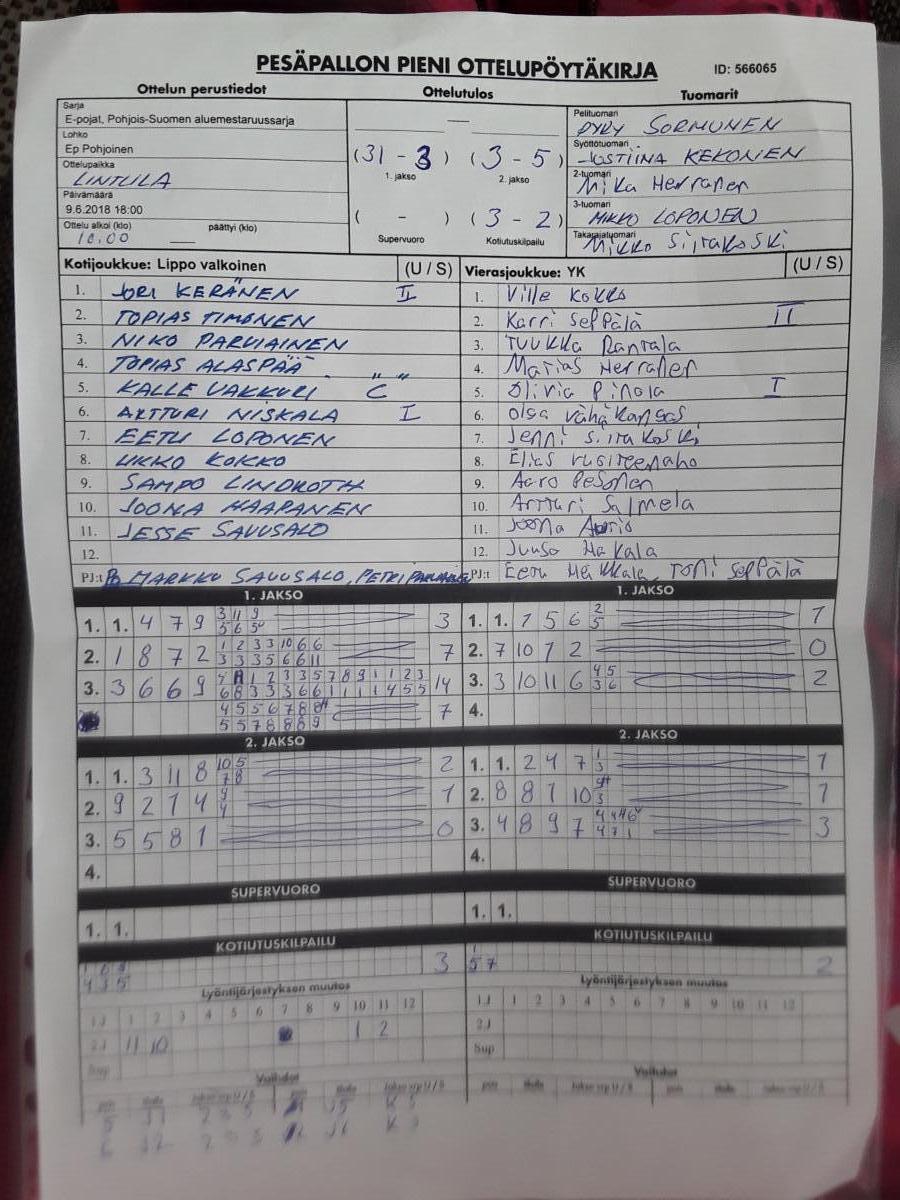 PESÄPALLON PIENI OTTELUPÖYTÄKIRJA ID: 566065
Ottelun perustiedot Ottelutulos Tuomarit
Sarja
E-pojat, Pohjois-Suomen aluemestaruussarja
Lohko
Ep Pohjoinen
Ottelupaikka
LINTULA
Päivämäärä
9.6.2018 18:00
Ottelu alkoi (klo) päättyi (klo)
18.00
—
(31 - 3) (3 - 5)
1. jakso 2. jakso
( - ) (3 - 2)
Supervuoro Kotiutuskilpailu
Pelituomari
PYRY SORMUNEN
Syöttötuomari
JUSTIINA KEKONEN
2-tuomari
Mika Herranen
3-tuomari
MIKKO LOPONEN
Takarajatuomari
Mikko Siirakoski
Kotijoukkue: Lippo valkoinen (U / S)
1. JORI KERÄNEN II
2. TOPIAS TIMONEN
3. NIKO PARVIAINEN
4. TOPIAS ALASPÄÄ
5. KALLE VAKKURI "C"
6. ARTTURI NISKALA I
7. EETU LOPONEN
8. UKKO KOKKO
9. SAMPO LINDROTH
10. JOONA HAAPANEN
11. JESSE SAVUSALO
12.
PJ:t MARKKU SAVUSALO, PETRI
Vierasjoukkue: YK (U / S)
1. Ville Kokko
2. Karri Seppälä II
3. TUUKKA Rantala
4. Matias Herranen
5. Olivia Pinola I
6. Olga Vähäkangas
7. Jenni Siirakoski
8. Elias
9. Aaro Pesonen
10. Artturi Salmela
11. Joona
12. Juuso Hakala
PJ:t Eetu Heikkala, Toni Seppälä
1. JAKSO
1. 1. 4 7 9 3 11 9 3
5 6 5
2. 1 8 7 2 1 2 3 3 10 6 6 7
3 3 3 5 6 6 11
3. 3 6 6 9 14
6 8 3 3 3 6 6 1 1 1 1 4 5 5
4 5 5 6 7 8 7
5 5 7 8 8 8 9
1. JAKSO
1. 1. 1 5 6 2 1
5
2. 7 10 1 2 0
3. 3 10 11 6 4 5 2
3 6
4.
2. JAKSO
1. 1. 3 11 8 10 5 2
7 8
2. 9 2 1 4 9 1
4
3. 5 5 8 1 0
4.
2. JAKSO
1. 1. 2 4 7 1 1
3
2. 8 8 1 10 1
3
3. 4 8 9 7 3
4 7 1
4.
SUPERVUORO
1. 1.
SUPERVUORO
1. 1.
KOTIUTUSKILPAILU
3
4 3 5
KOTIUTUSKILPAILU
1
5 7 2
Lyöntijärjestyksen muutos
1.J 1 2 3 4 5 6 7 8 9 10 11 12
2.J 11 10 1 2
Sup
Lyöntijärjestyksen muutos
1.J 1 2 3 4 5 6 7 8 9 10 11 12
2.J
Sup
Vaihdot
Vaihdot